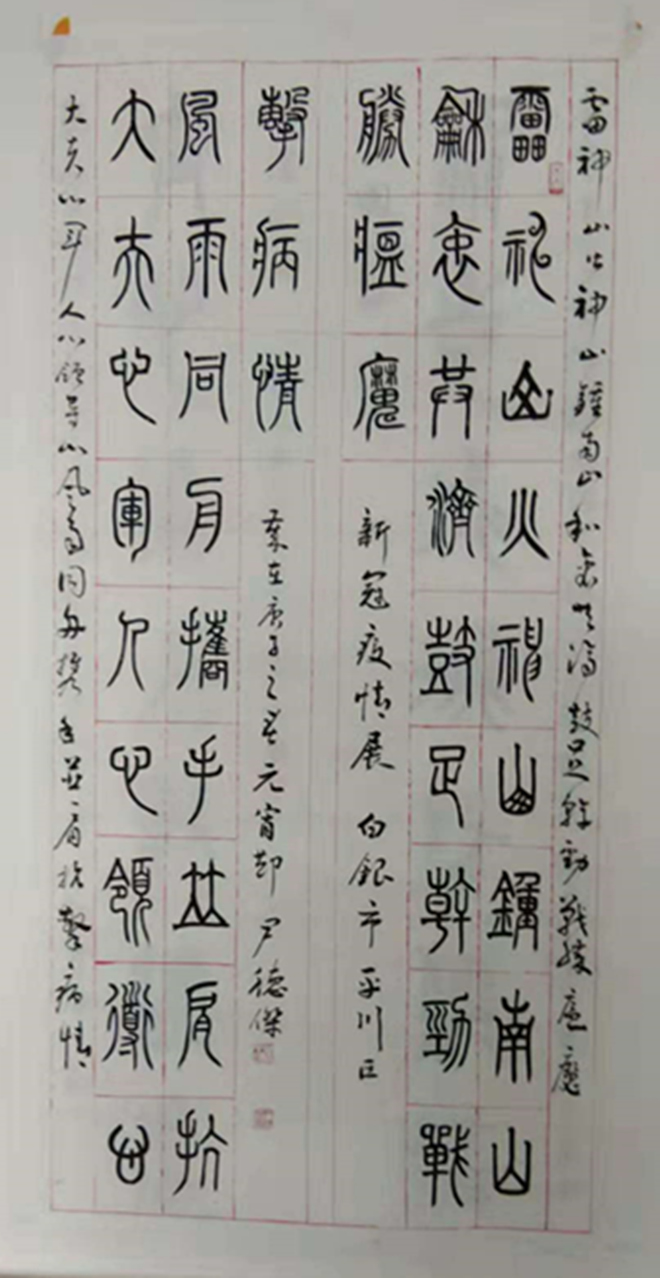 雷神山火神山鍾南山和衷共濟鼓足幹勁戰勝瘟魔
雷神山火神山鍾南山
龢衷共濟鼓足幹勁戰
勝瘟魔
新冠疫情展 白銀市平川区
大夫心军人心領导心风雨同舟携手並肩抗擊病情
大夫心軍人心領導心
風雨同舟攜手並肩抗
擊病情
歲在庚子之春元宵節 尹德傑